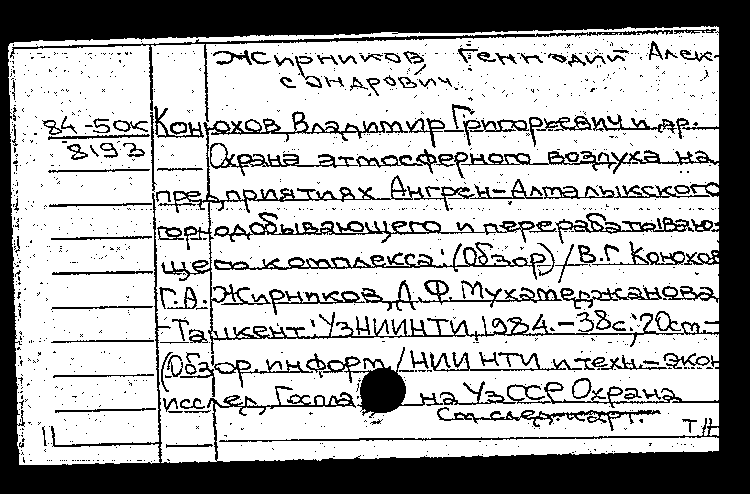 Жирников Геннадий Алек-
сандрович
84-50К Конюхов, Владимир Григорьевич и др.
8193 Охрана атмосферного воздуха на
предприятиях Ангрен-Алмалыкского
горнодобывающего и перерабатываю-
щего комплекса: (Обзор) / В.Г. Конюхов
Г.А. Жирников, Д.Ф. Мухамеджанова
-Ташкент: УзНИИНТИ, 1984.-38с.; 20см.-
(Обзор. информ. / НИИ НТИ и техн.-экон
исслед. Госпла на УзССР. Охрана
См. след. карт.